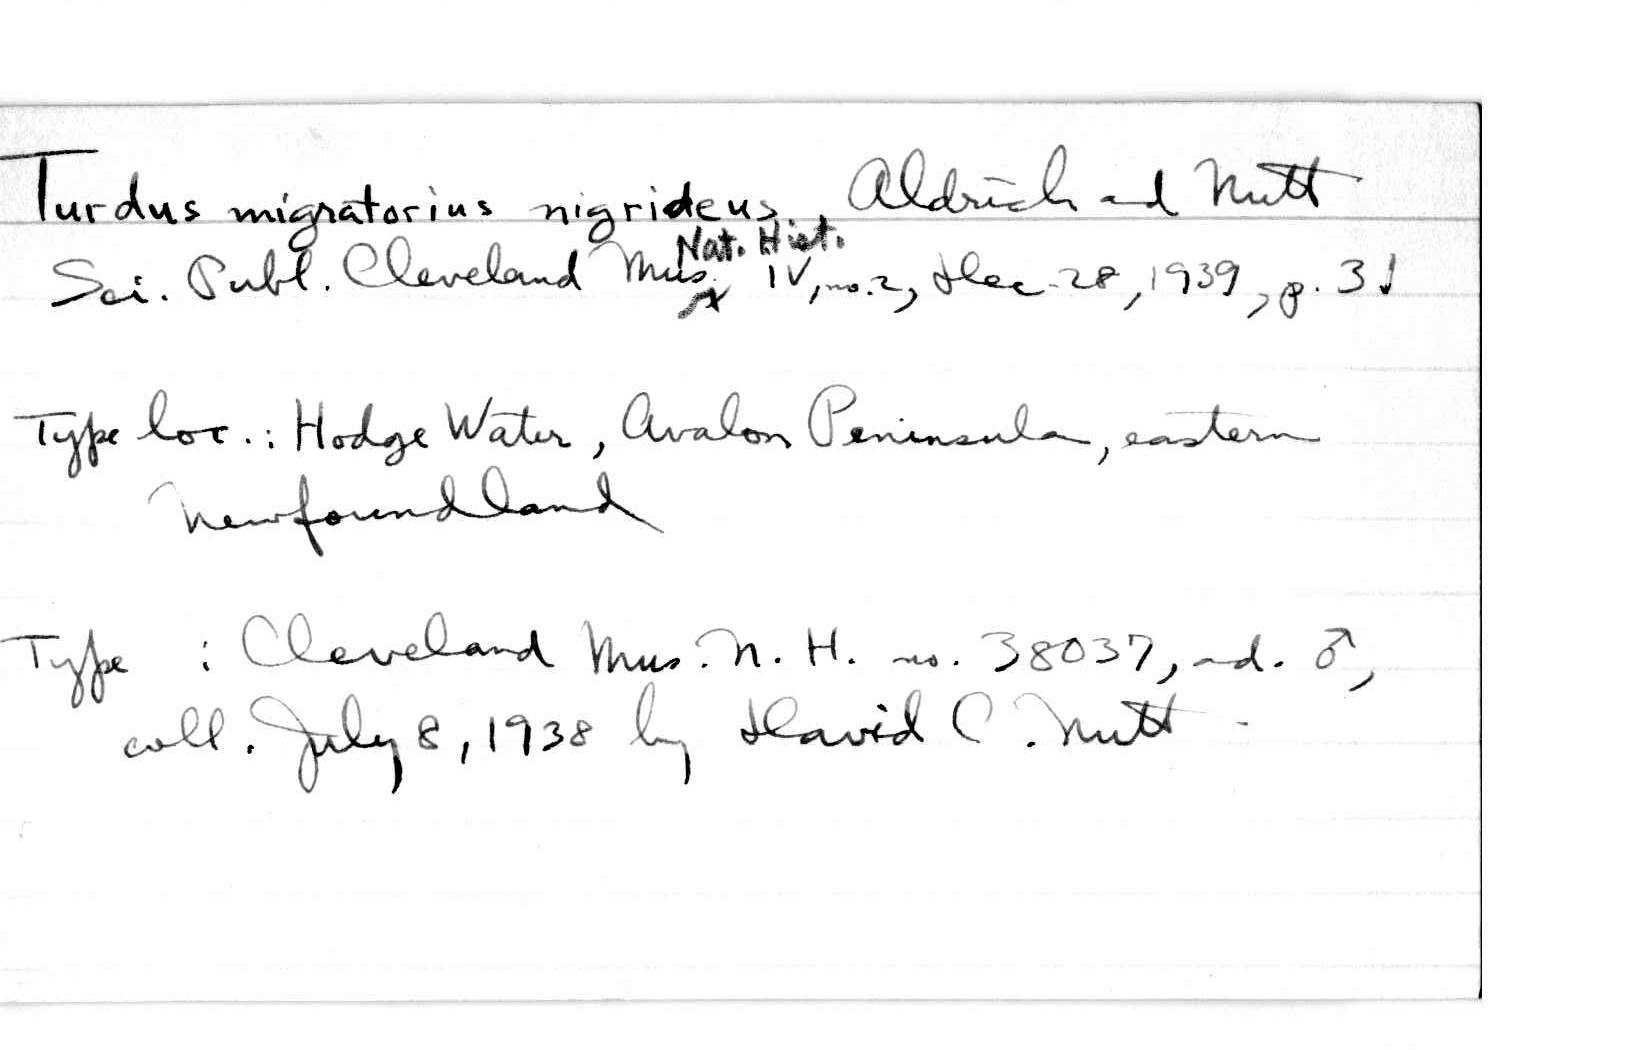 Turdus migratorius nigrideus, Aldrich and Nutt
Sci. Publ. Cleveland Mus. Nat. Hist. IV, no. 2, Dec. 28, 1939, p. 31
Type loc.: Hodge Water, Avalon Peninsula, eastern
Newfoundland
Type : Cleveland Mus. N. H. no. 38037, ad. ♂,
coll. July 8, 1938 by David C. Nutt